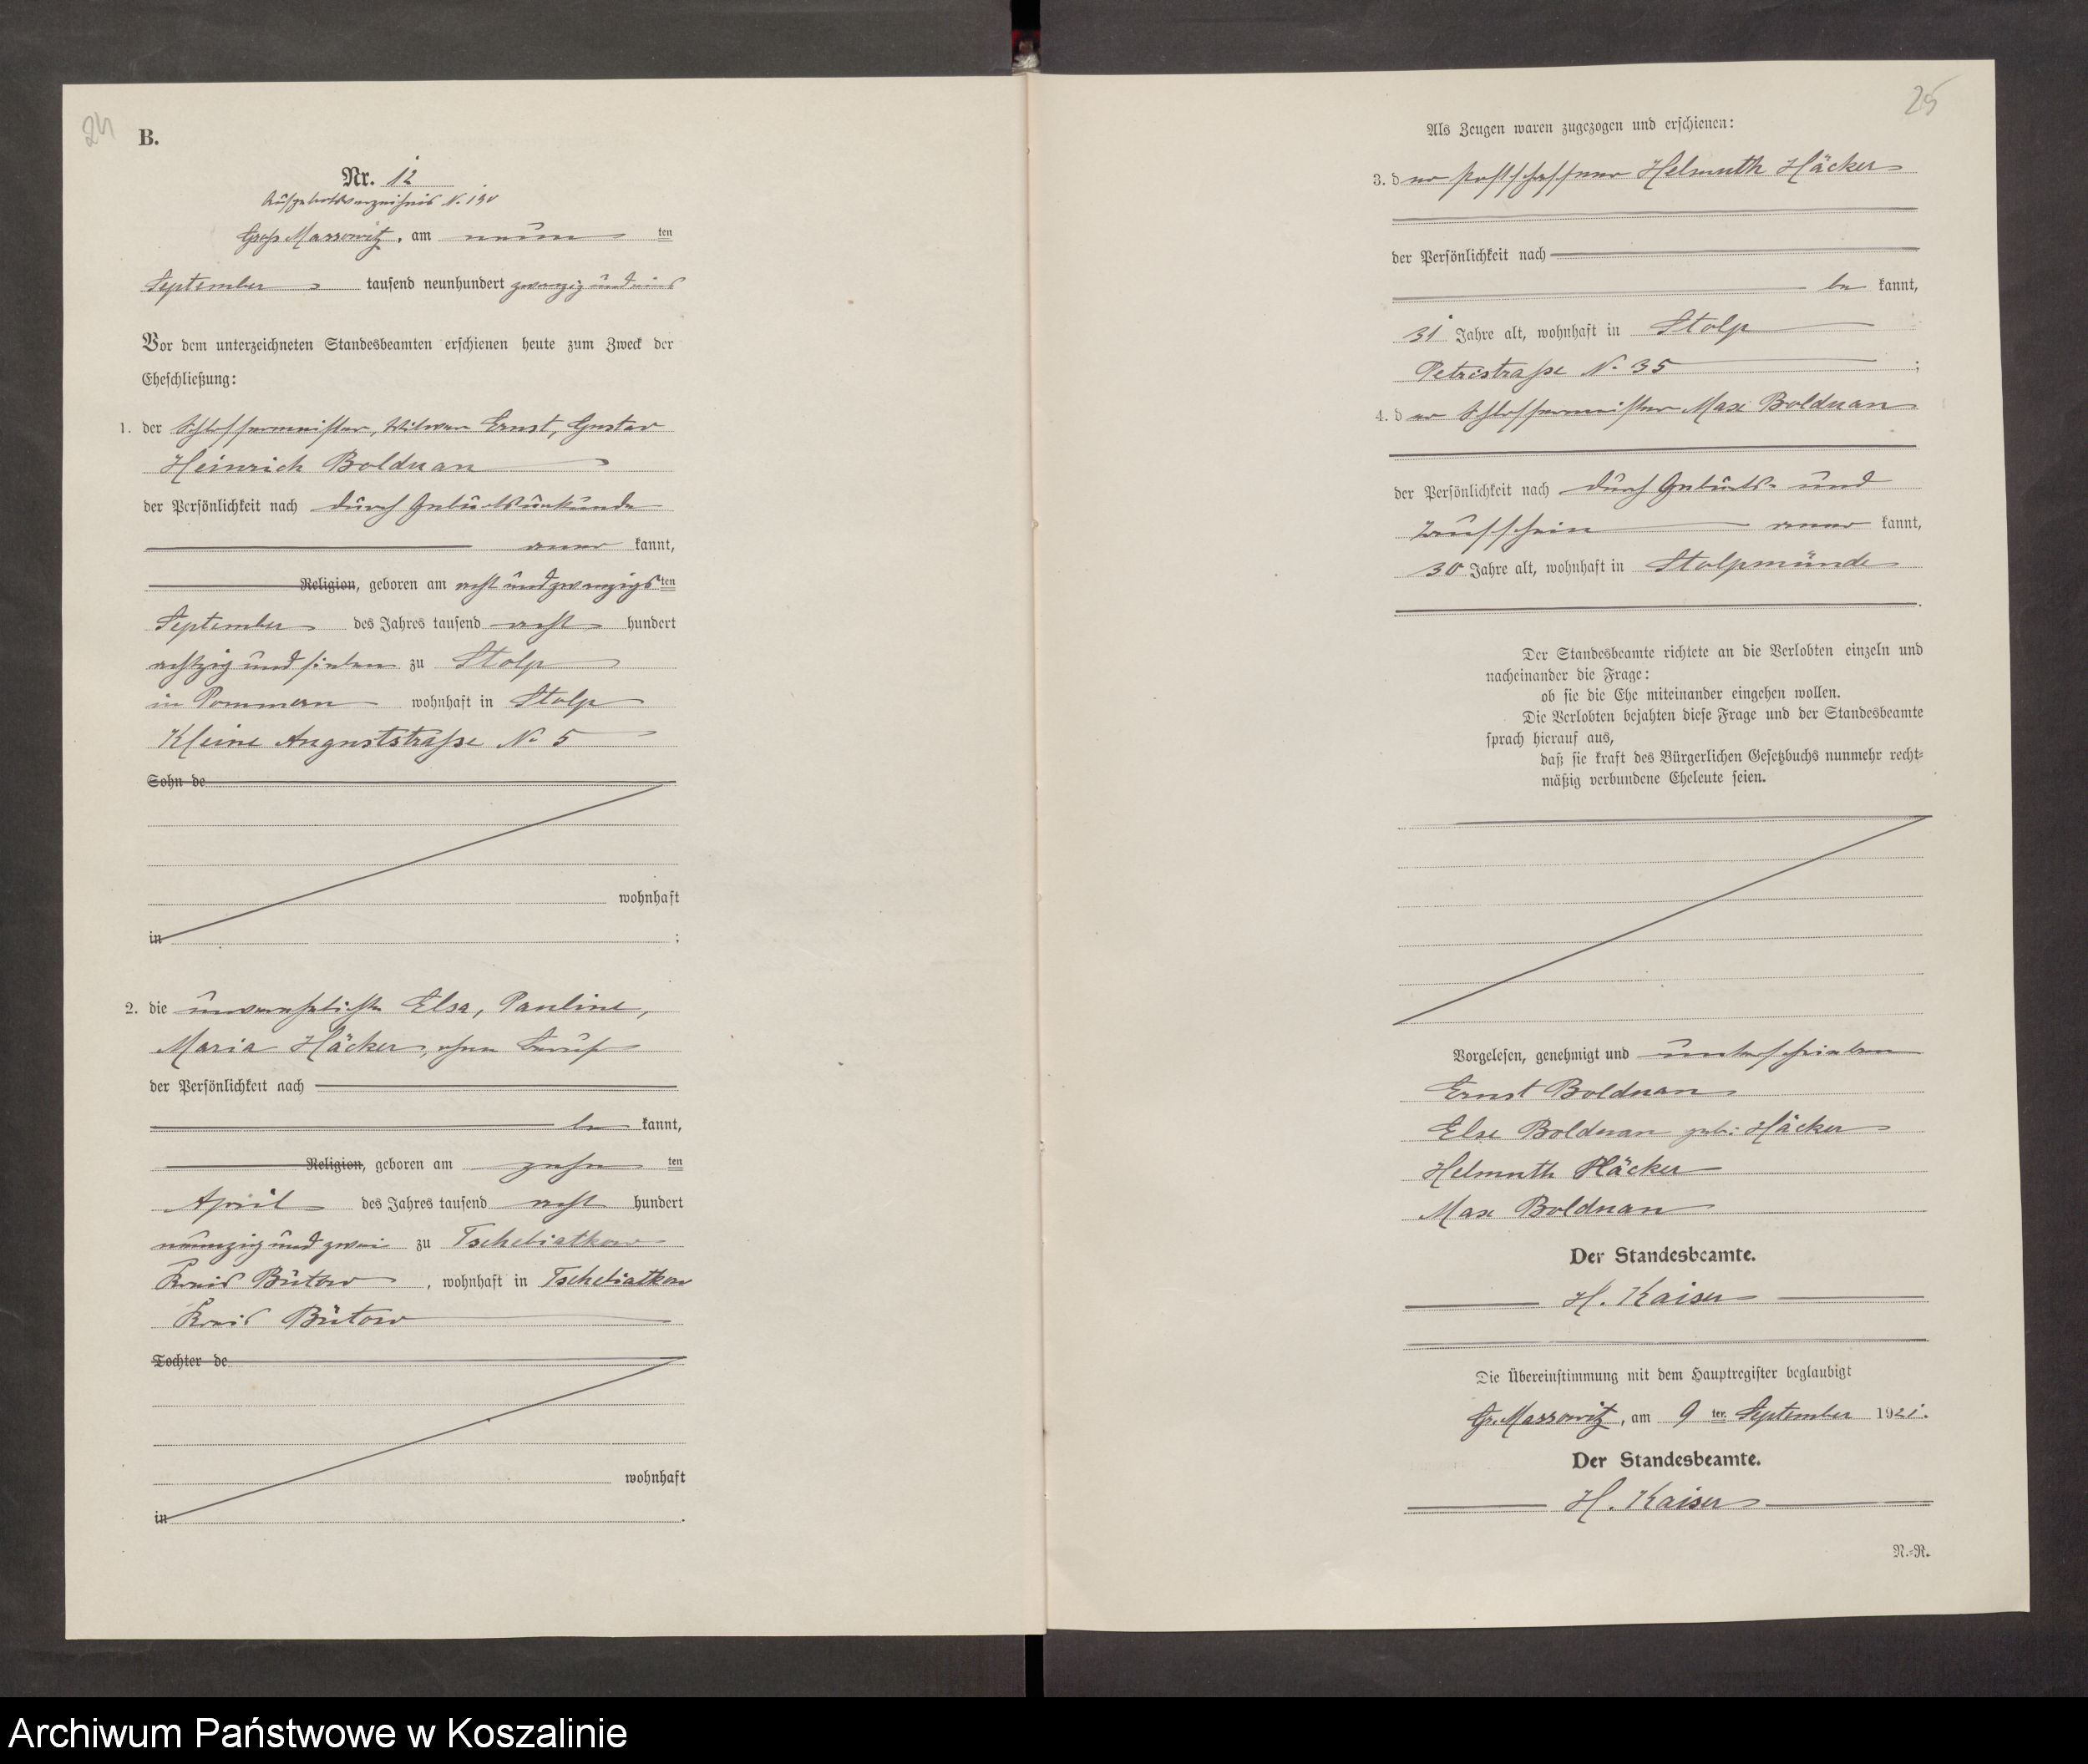 24
B.
Nr. 12
Aufgebotsverzeichnis N.
Groß Massowitz, am neun ten
September tausend neunhundert zwanzig und eins
Vor dem unterzeichneten Standesbeamten erschienen heute zum Zweck der
Eheschließung:
1. der Schlossermeister, Witwer Ernst, Gustav
Heinrich Bolduan
der Persönlichkeit nach durch Geburtsurkunde
aner kannt,
Religion, geboren am acht und zwanzigs ten
September des Jahres tausend acht hundert
achtzig und sieben zu Stolp
in Pommern wohnhaft in Stolp
Kleine Auguststraße N. 5
Sohn de
wohnhaft
in ;
2. die unverehelichte Elsa, Pauline,
Maria Häcker, ohne Beruf
der Persönlichkeit nach
be kannt,
Religion, geboren am zehn ten
April des Jahres tausend acht hundert
neunzig und zwei zu Tschebiatkow
Kreis Bütow, wohnhaft in Tschebiatkow
Kreis Bütow
Tochter de
wohnhaft
in .
25
Als Zeugen waren zugezogen und erschienen:
3. d er Postschaffner Helmuth Häcker
der Persönlichkeit nach
be kannt,
31 Jahre alt, wohnhaft in Stolp
Petristraße N. 35 ;
4. d er Schlossermeister Max Bolduan
der Persönlichkeit nach durch Geburts- und
Taufschein aner kannt,
30 Jahre alt, wohnhaft in Stolpmünde
.
Der Standesbeamte richtete an die Verlobten einzeln und
nacheinander die Frage:
ob sie die Ehe miteinander eingehen wollen.
Die Verlobten bejahten diese Frage und der Standesbeamte
sprach hierauf aus,
daß sie kraft des Bürgerlichen Gesetzbuchs nunmehr recht-
mäßig verbundene Eheleute seien.
Vorgelesen, genehmigt und unterschrieben
Ernst Bolduan
Else Bolduan geb: Häcker
Helmuth Häcker
Max Bolduan
Der Standesbeamte.
H. Kaiser
Die Übereinstimmung mit dem Hauptregister beglaubigt
Gr. Massowitz, am 9 ten September 1921.
Der Standesbeamte.
H. Kaiser
N.-R.
Archiwum Państwowe w Koszalinie